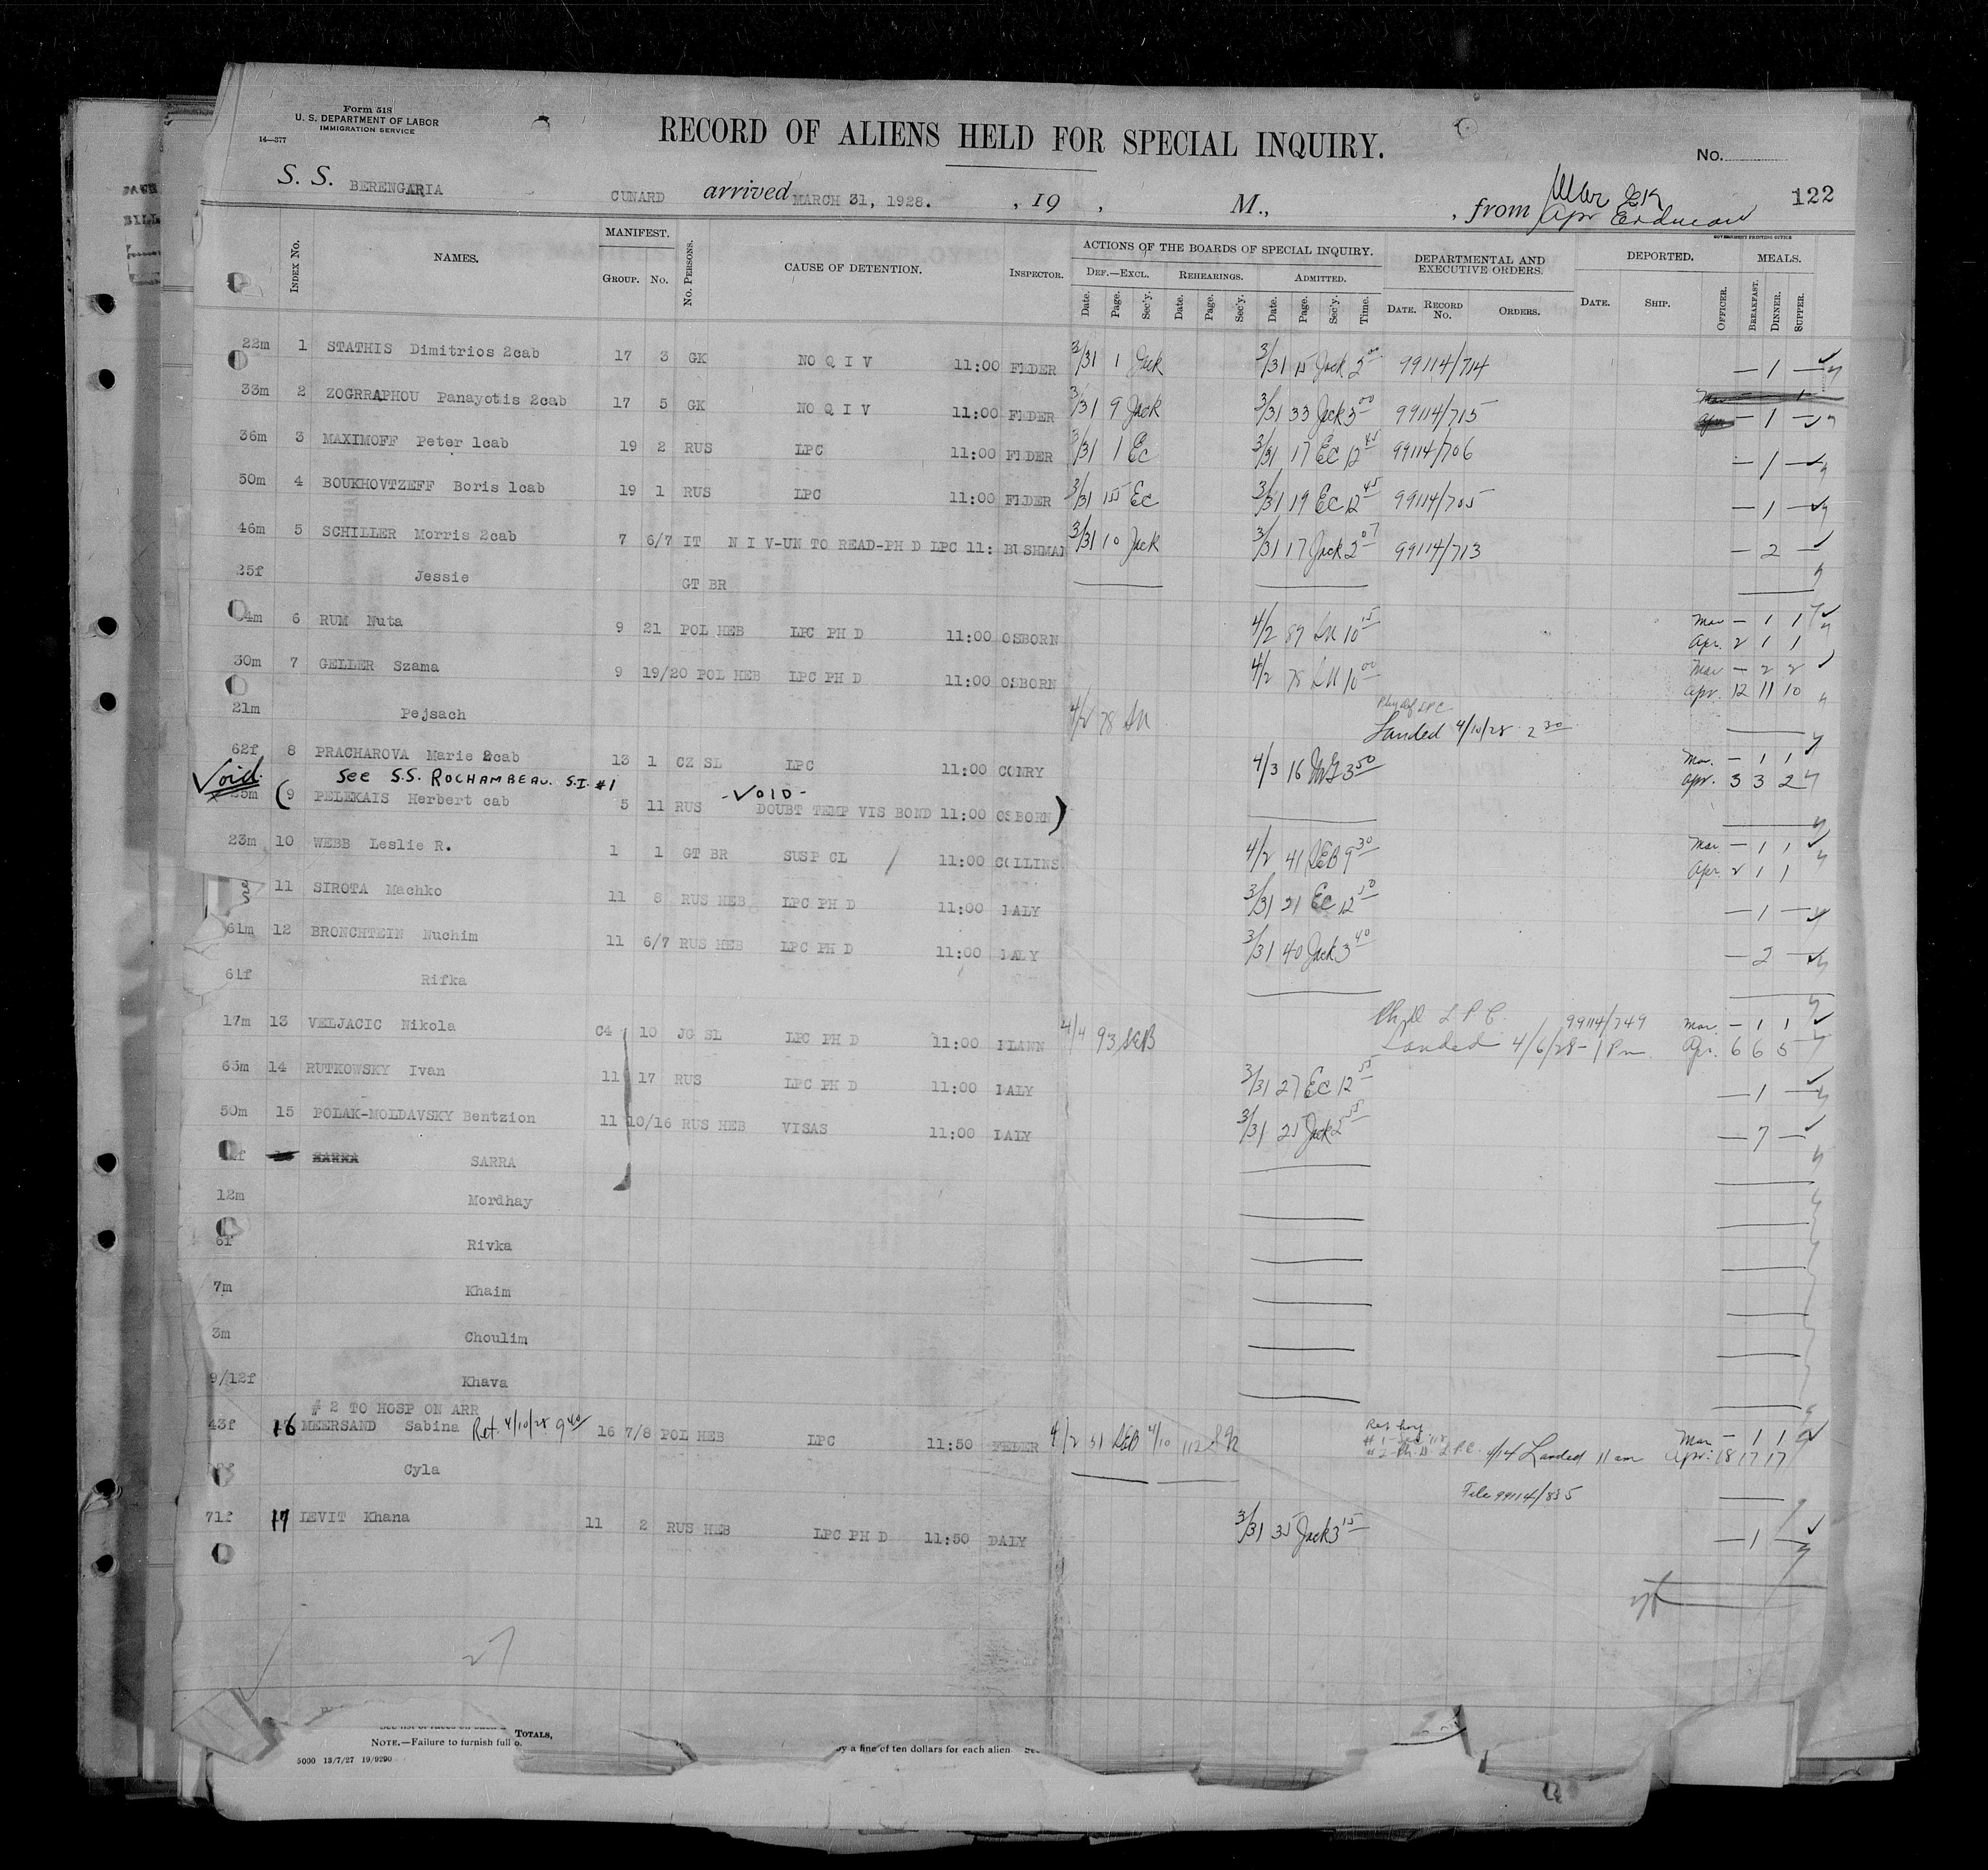 Form 518
U. S. DEPARTMENT OF LABOR
IMMIGRATION SERVICE
14—377
RECORD OF ALIENS HELD FOR SPECIAL INQUIRY.
No.
S. S. BERENGARIA CUNARD arrived MARCH 31, 1928. , 19 , M., , from 122
GOVERNMENT PRINTING OFFICE
INDEX No. NAMES. MANIFEST. GROUP. No. No. PERSONS. CAUSE OF DETENTION. INSPECTOR. ACTIONS OF THE BOARDS OF SPECIAL INQUIRY. DEPARTMENTAL AND EXECUTIVE ORDERS. DEPORTED. MEALS.
DEF.—EXCL. REHEARINGS. ADMITTED.
Date. Page. Sec'y. Date. Page. Sec'y. Date. Page. Sec'y. Time. DATE. RECORD No. ORDERS. DATE. SHIP. OFFICER. BREAKFAST. DINNER. SUPPER.
22m 1 STATHIS Dimitrios 2cab 17 3 GK NO Q I V 11:00 FEDER 3/31 1 Jack 3/31 15 Jack 2 00 99114/714 — 1 —
33m 2 ZOGRRAPHOU Panayotis 2cab 17 5 GK NO Q I V 11:00 FEDER 3/31 9 Jack 3/31 33 Jack 3 00 99114/715 — 1 —
36m 3 MAXIMOFF Peter 1cab 19 2 RUS LPC 11:00 FEDER 3/31 1 Ec 3/31 17 Ec 12 45 99114/706 — 1 —
50m 4 BOUKHOVTZEFF Boris 1cab 19 1 RUS LPC 11:00 FEDER 3/31 155 Ec 3/31 19 Ec 12 45 99114/705 — 1 —
46m 5 SCHILLER Morris 2cab 7 6/7 IT N I V-UN TO READ-PH D LPC 11: BUSHMAN 3/31 10 Jack 3/31 17 Jack 2 07 99114/713 — 2 —
25f Jessie GT BR
4m 6 RUM Nuta 9 21 POL HEB LPC PH D 11:00 OSBORN 4/2 89 10 15 Mar — 1 1
Apr. 2 1 1
30m 7 GELLER Szama 9 19/20 POL HEB LPC PH D 11:00 OSBORN 4/2 78 10 00 Mar — 2 2
Apr. 12 11 10
21m Pejsach 4/2 78 Landed 4/10/28 2 30
62f 8 PRACHAROVA Marie 2cab 13 1 CZ SL LPC 11:00 CONRY 4/3 16 3 50 Mar. — 1 1
Apr. 3 3 2
Void. See S.S. ROCHAMBEAU. S.I. #1
25m (9 PELEKAIS Herbert cab 5 11 RUS -VOID- DOUBT TEMP VIS BOND 11:00 OSBORN)
23m 10 WEBB Leslie R. 1 1 GT BR SUSP CL 11:00 COLLINS 4/2 41 DEB 9 30 Mar — 1 1
Apr. 2 1 1
11 SIROTA Machko 11 8 RUS HEB LPC PH D 11:00 DALY 3/31 21 Ec 12 50 — 1 —
61m 12 BRONCHTEIN Nuchim 11 6/7 RUS HEB LPC PH D 11:00 DALY 3/31 40 Jack 3 40 — 2 —
61f Rifka
17m 13 VELJACIC Nikola C4 10 JG SL LPC PH D 11:00 4/4 93 DEB Ph.D L P C. 99114/749 Mar. — 1 1
Landed 4/6/28 - 1 Pm. Apr. 6 6 5
65m 14 RUTKOWSKY Ivan 11 17 RUS LPC PH D 11:00 DALY 3/31 27 Ec 12 55 — 1 —
50m 15 POLAK-MOLDAVSKY Bentzion 11 10/16 RUS HEB VISAS 11:00 DALY 3/31 25 Jack 2 55 — 7 —
SARRA SARRA
12m Mordhay
6f Rivka
7m Khaim
3m Choulim
9/12f Khava
# 2 TO HOSP ON ARR
43f 16 MEERSAND Sabina Ret. 4/10/28 9 40 16 7/8 POL HEB LPC 11:50 FEDER 4/2 51 DEB 4/10 112 4/14 Landed 11 am Mar — 1 1
Apr: 18 17 17
Cyla
File 99114/835
71f 17 LEVIT Khana 11 2 RUS HEB LPC PH D 11:50 DALY 3/31 35 Jack 3 15 — 1 —
27
TOTALS,
NOTE.—Failure to furnish full
by a fine of ten dollars for each alien
5000 13/7/27 19/9200